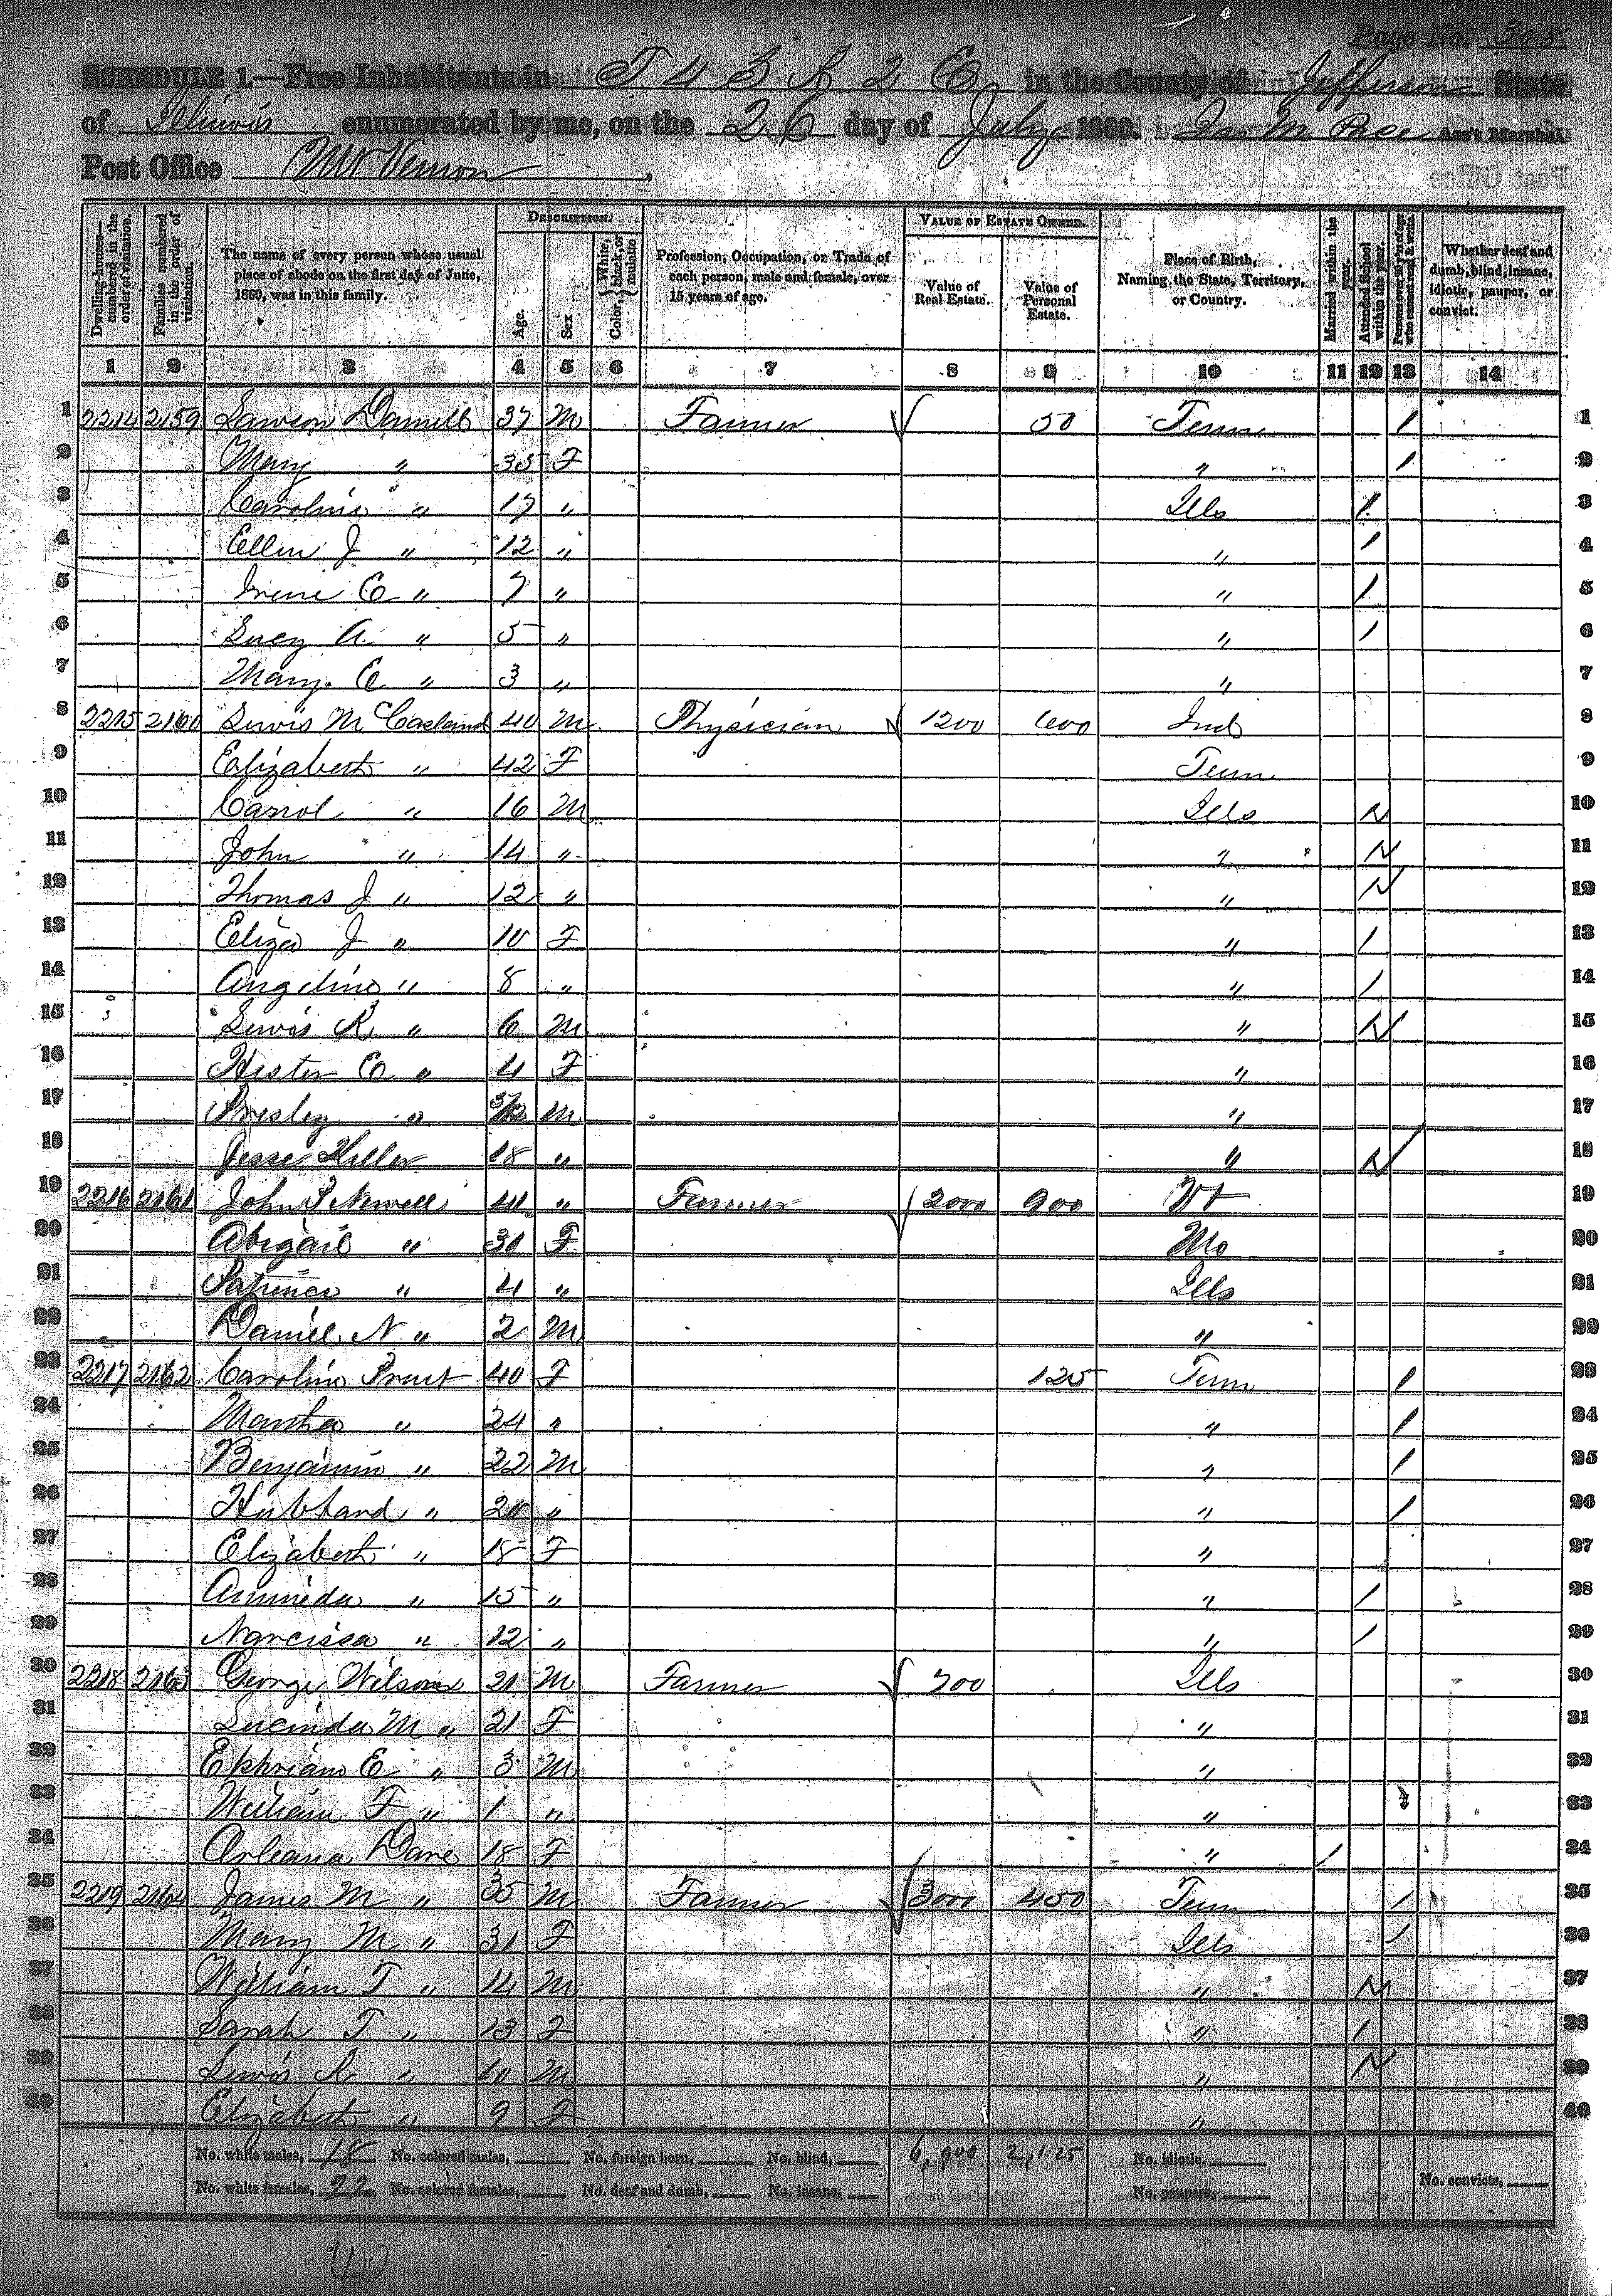 Page No. 305
SCHEDULE 1.—Free Inhabitants in T 4 S R 2 E in the County of Jefferson State
of Illinois enumerated by me, on the 26 day of July 1860. Jas M Pace Ass't Marshal
Post Office Mt Vernon
Dwelling-houses—numbered in the order of visitation.
Families numbered in the order of visitation.
The name of every person whose usual place of abode on the first day of June, 1860, was in this family.
DESCRIPTION.
Age.
Sex
Color, White, black, or mulatto
Profession, Occupation, or Trade of each person, male and female, over 15 years of age.
VALUE OF ESTATE OWNED.
Value of Real Estate.
Value of Personal Estate.
Place of Birth, Naming the State, Territory, or Country.
Married within the year.
Attended School within the year.
Persons over 20 y'rs of age who cannot read & write.
Whether deaf and dumb, blind, insane, idiotic, pauper, or convict.
1 2 3 4 5 6 7 8 9 10 11 12 13 14
1 2214 2159 37 M Farmer 50 Tenn / 1
2 Mary " 35 F " / 2
3 Caroline " 17 " Ills / 3
4 Ellen J " 12 " " / 4
5 Irene E " 7 " " / 5
6 Lucy A " 5 " " / 6
7 Mary E " 3 " " 7
8 2215 2160 Lewis McCasland 40 M Physician 1200 600 Ind 8
9 Elizabeth " 42 F Tenn 9
10 Carrol " 16 M Ills 10
11 John " 14 " " 11
12 Thomas J " 12 " " 12
13 Eliza J " 10 F " / 13
14 Angeline " 8 " " / 14
15 Lewis R " 6 M " 15
16 Hester E " 4 F " 16
17 Presley " M " 17
18 Jesse 18 " " 18
19 2216 2161 John Newell 41 " Farmer 2000 900 Vt 19
20 Abigail " 31 F Mo 20
21 " 4 " Ills 21
22 Daniel N " 2 M " 22
23 2217 2162 Caroline Pruet 40 F 125 Tenn / 23
24 Martha " 24 " " / 24
25 Benjamin " 22 M " / 25
26 Hubbard " 20 " " / 26
27 Elizabeth " 18 F " 27
28 " 15 " " / 28
29 Narcissa " 12 " " / 29
30 2218 2163 George Wilson 21 M Farmer 700 Ills 30
31 Lucinda M " 21 F " 31
32 Ephriam E " 3 M " 32
33 William F " 1 " " 33
34 Orleana Dare 18 F " / 34
35 2219 2164 James M " 35 M Farmer 3000 450 Tenn / 35
36 Mary M " 31 F Ills / 36
37 William T " 14 M " 37
38 Sarah T " 13 F " / 38
39 Lewis R " 10 M " 39
40 Elizabeth " 9 F " 40
No. white males, 18 No. colored males, No. foreign born, No. blind, 6,900 2,125 No. idiotic,
No. white females, 22 No. colored females, No. deaf and dumb, No. insane, No. paupers, No. convicts,
40